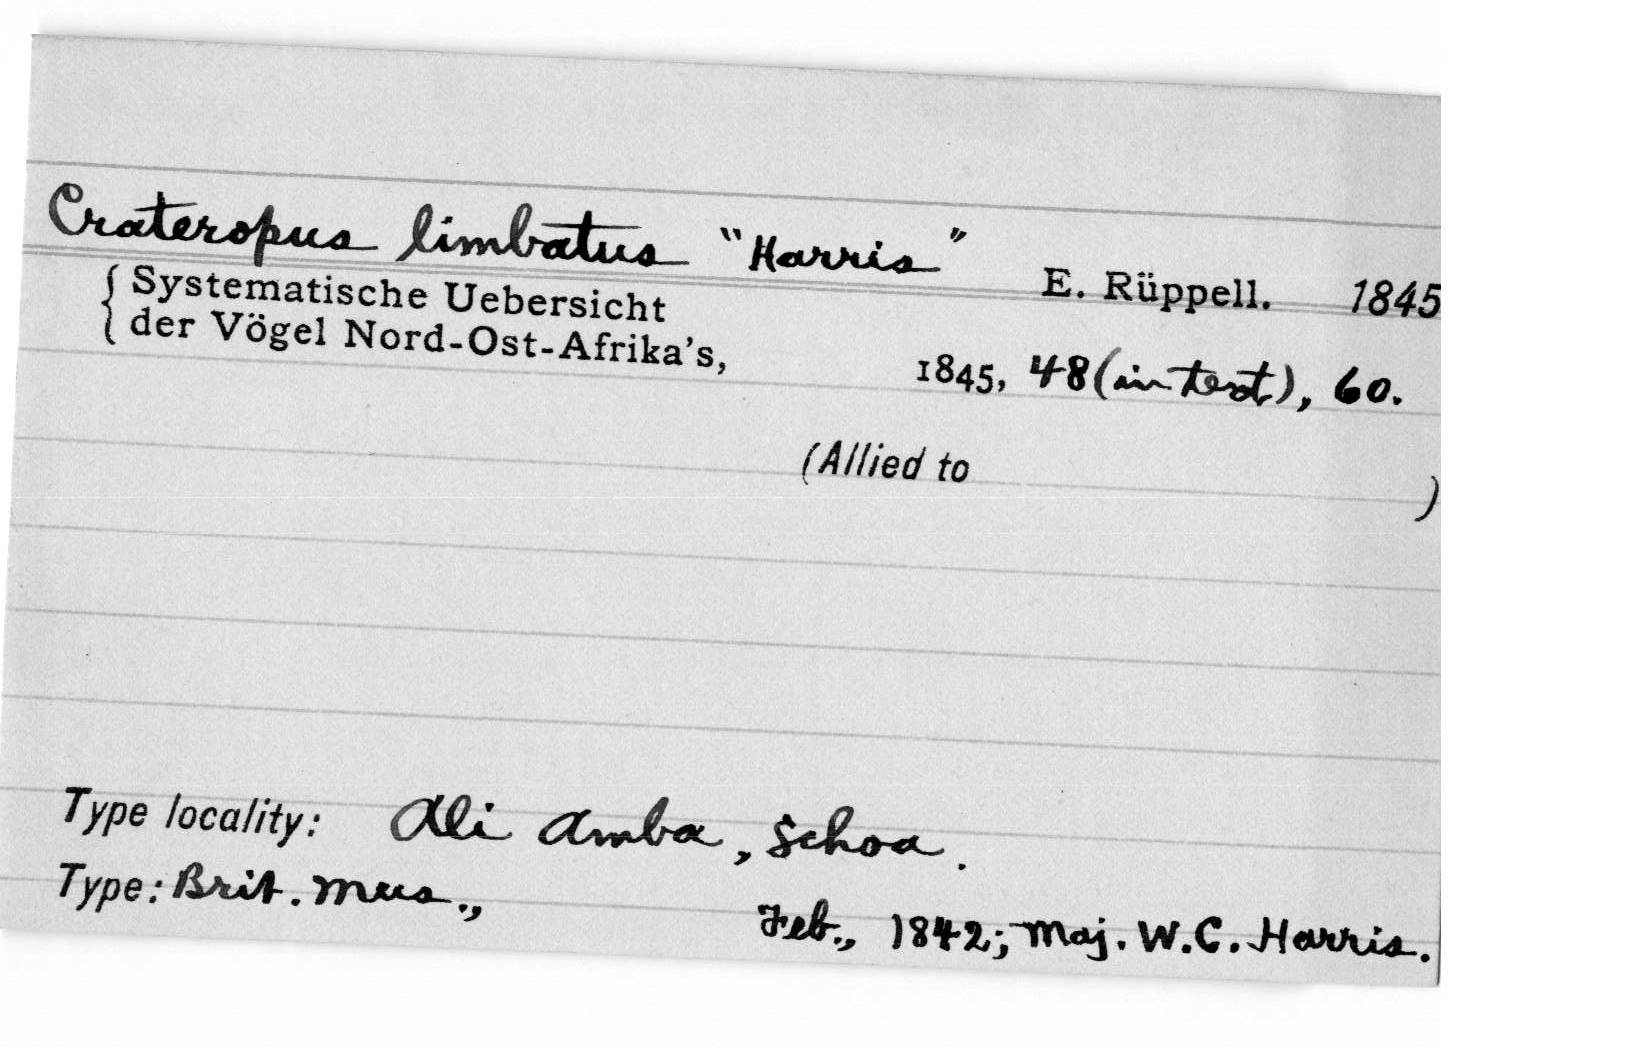 Crateropus limbatus "Harris" E. Rüppell. 1845
{ Systematische Uebersicht
{ der Vögel Nord-Ost-Afrika's, 1845, 48 (in text), 60.
(Allied to )
Type locality: Ali Amba, Schoa.
Type: Brit. Mus., Feb., 1842; Maj. W. C. Harris.